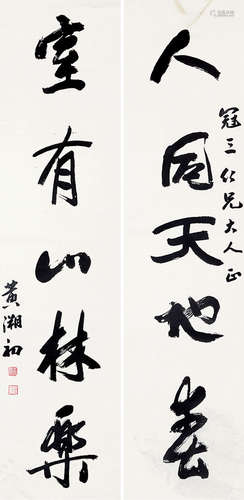 人同天地春
冠三仁兄大人正
室有山林樂
黄溯初